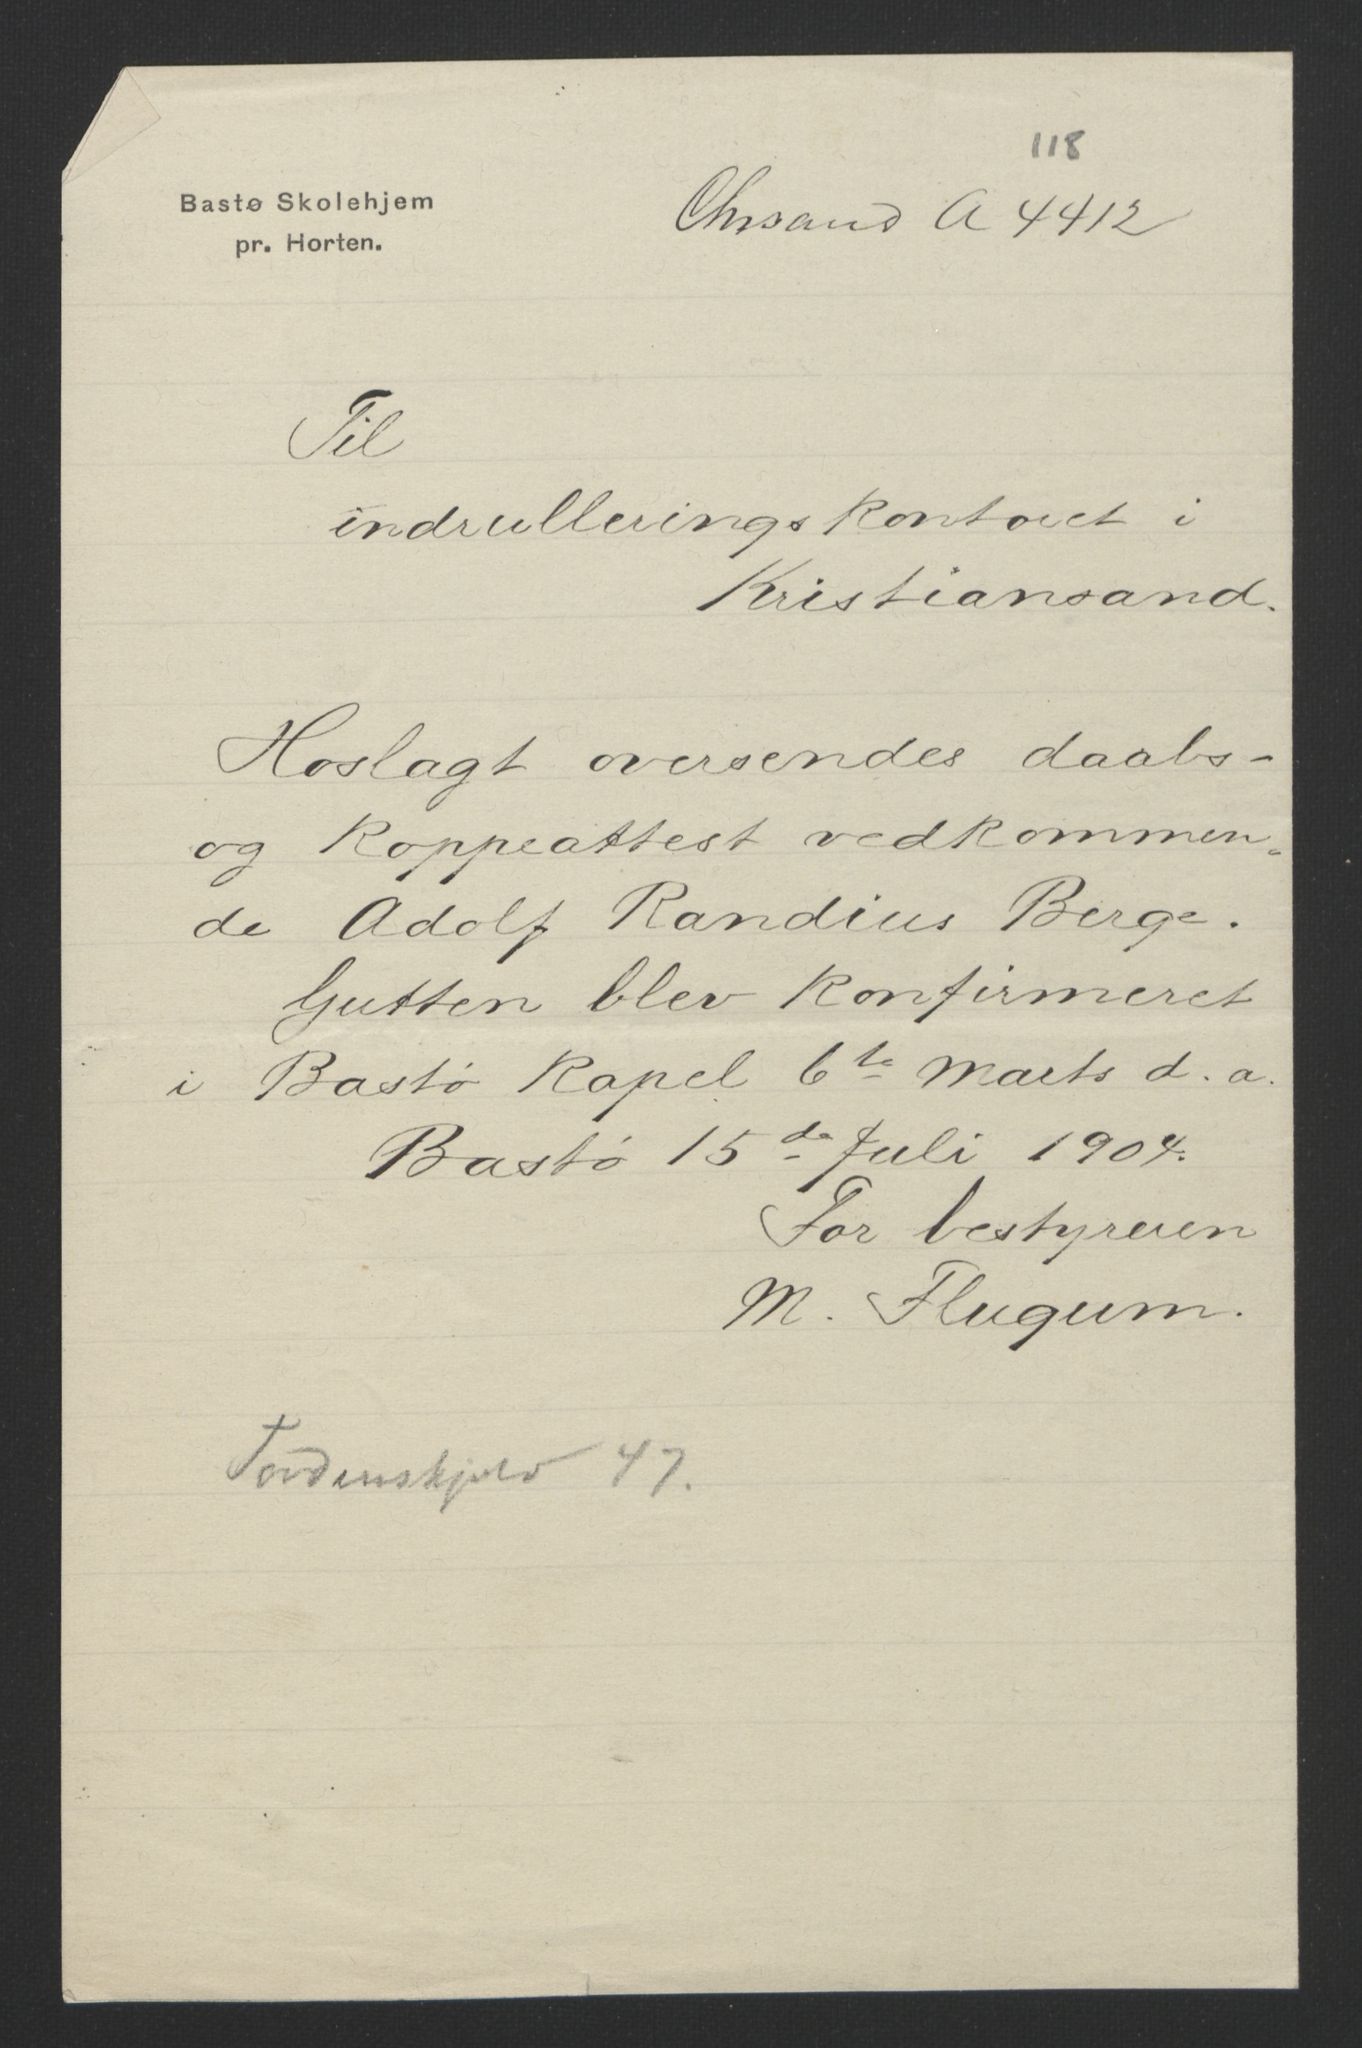 118
Bastø Skolehjem
pr. Horten.
Chrsand A 4412
Til
indrulleringskontoret i
Kristiansand.
Hoslagt oversendes daabs-
og koppeattest vedkommen-
de Adolf Randius Berge.
Gutten blev konfirmeret
i Bastø Kapel 6te Marts d. a.
Bastø 15de Juli 1904.
For bestyreren
M. Flugum.
Tordenskjold 47.